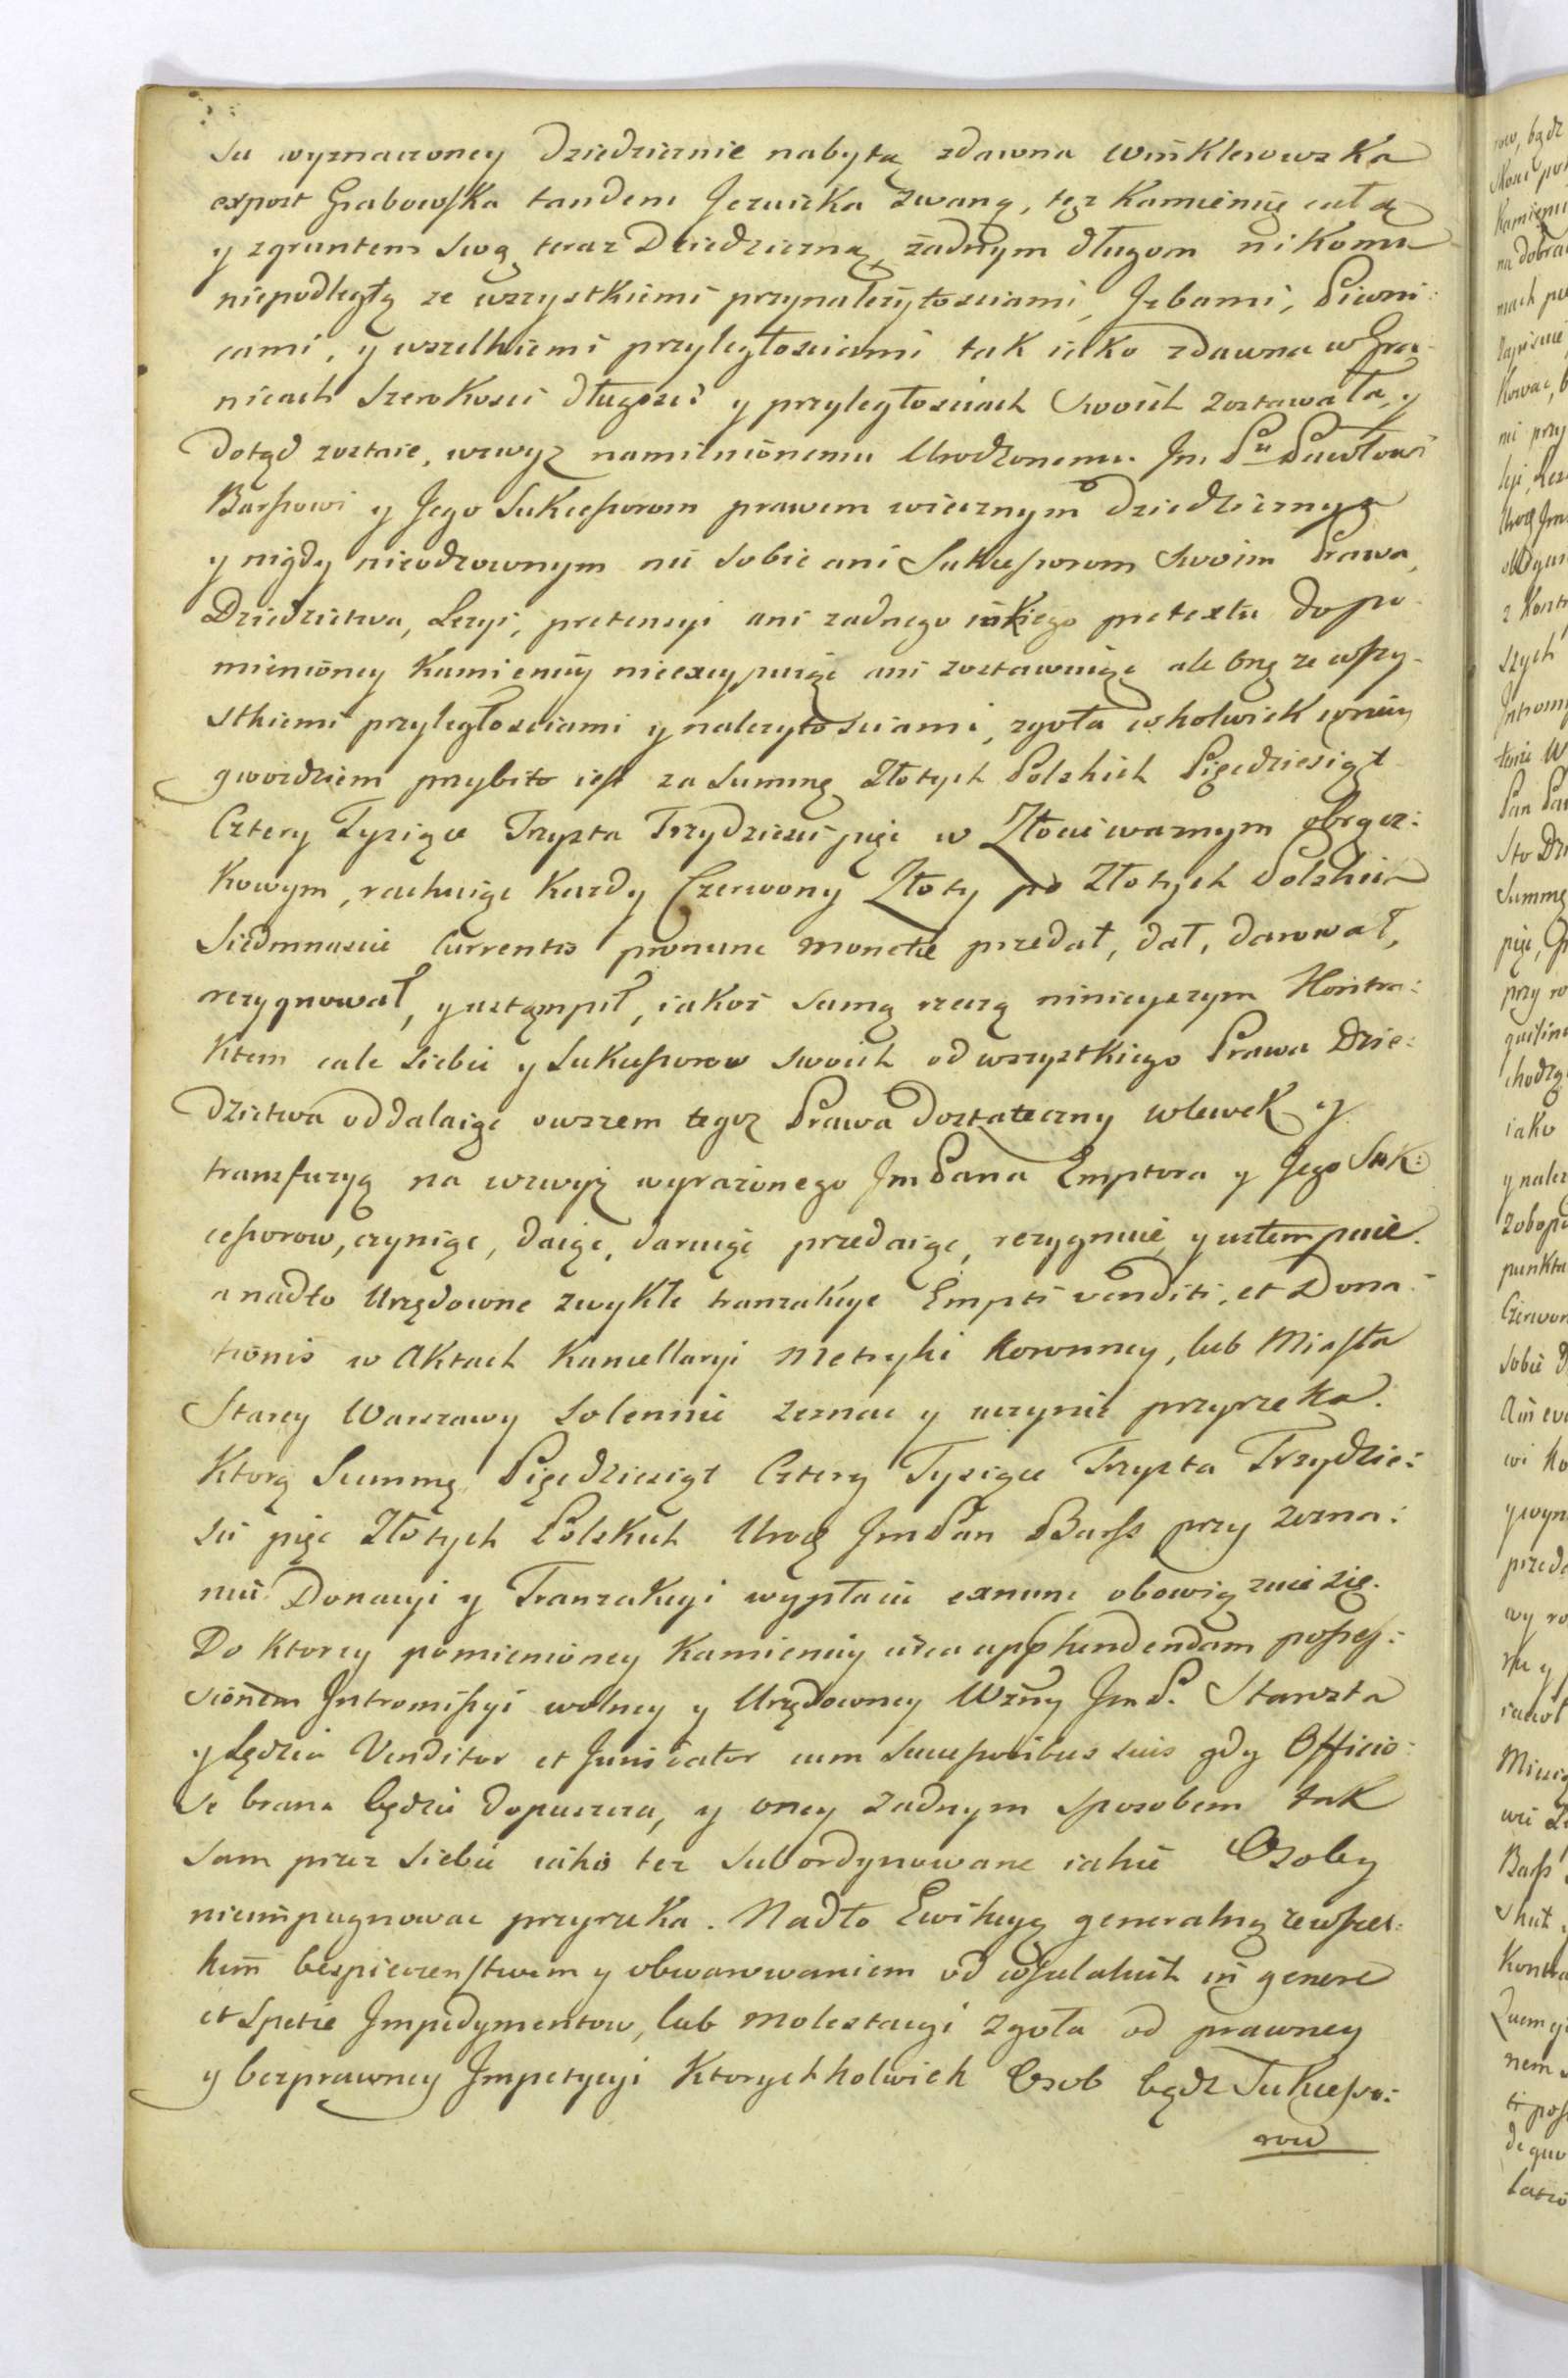 su wyznaczoney Dziedzicznie nabytą zdawna Winklerowska
expost Grabowska tandem Jezuicka zwaną, tęż Kamienicę całą
y zgruntem swą teraz Dziedziczną, żadnym długom nikomu
niepodległą ze wszystkiemi przynależytosciami, Jzbami, Piwni:
cami, y wszelkiemi przyległosciami tak iako zdawna w Gra:
nicach Szerokosci długosci y przyległosciach swoich zostawała, y
dotąd zostaie, wzwyż namienionemu Urodzonemu Jm Pu Pawłowi
Barssowi y Jego Sukcessorom prawem wiecznym dziedzicznym
y nigdy nieodzownym nic sobie ani Sukcessorom swoim Prawa,
Dziedzictwa, Lezyi, pretensyi ani zadnego inszego pretextu do po
mienioney Kamienicy nieexcypuiąc ani zostawuiąc ale onę ze wszy:
stkiemi przyległosciami y nalezytosciami, zgoła cokolwiek w niey
gwozdziem przybito iest za Summę Złotych Polskich Pięcdziesiąt
Cztery Tysiące Trzysta Trzydziesci pięć w Złocie ważnym obrącz:
kowym, rachuiąc Kazdy Czerwony Złoty po Złotych Polskich
Siedmnascie Currentis pronunc monetæ przedał, dał, darował,
rezygnował, y ustąmpił, iakoż samą rzeczą ninieyszym Kontra:
ktem cale siebie y Sukcessorow swoich od wszystkiego Prawa Dzie:
dzictwa oddalaiąc owszem tegoż Prawa dostateczny wlewek y
transfuzyą na wzwyż wyrażonego Jm Pana Emptora y Jego Suk:
cessorow, czyniąc, daiąc, daruiąc przedaiąc, rezygnuie, y ustempuie.
a nadto Urzędowne zwykłe tranzakcye Empti venditi, et Dona:
tionis w Aktach Kancellaryi Metryki Koronney, lub Miasta
Starey Warszawy Solennie zeznac y uczynic przyrzeka.
Ktorą Summę Pięcdziesiąt Cztery Tysiące Trzysta Trzydzie:
sci pięc Złotych Polskich Urodz Jm Pan Barss przy zezna:
niu Donacyi y Tranzakcyi wypłacic exnunc obowiązuie się.
Do ktorey pomienioney Kamienicy circa apphendendam posses:
sionem Jntromissyi wolney y Urzędowney Wżny Jm P. Starosta
y Sędzia Venditor et Junicator cum Successoribus suis gdy Officio:
se brana będzie dopuszcza, y oney zadnym sposobem tak
sam przez siebie iako tez subordynowane iakie Osoby
nieimpugnowac przyrzeka. Nadto Ewikcyą generalną ze wszel:
kim bespieczenstwem y obwarowaniem od wszelakich in genere
et spetie Jmpedymentow, lub molestacyi zgoła od prawney
y bezprawney Jmpetycyi Ktorychkolwiek Osob bądz Sukcesso:
row